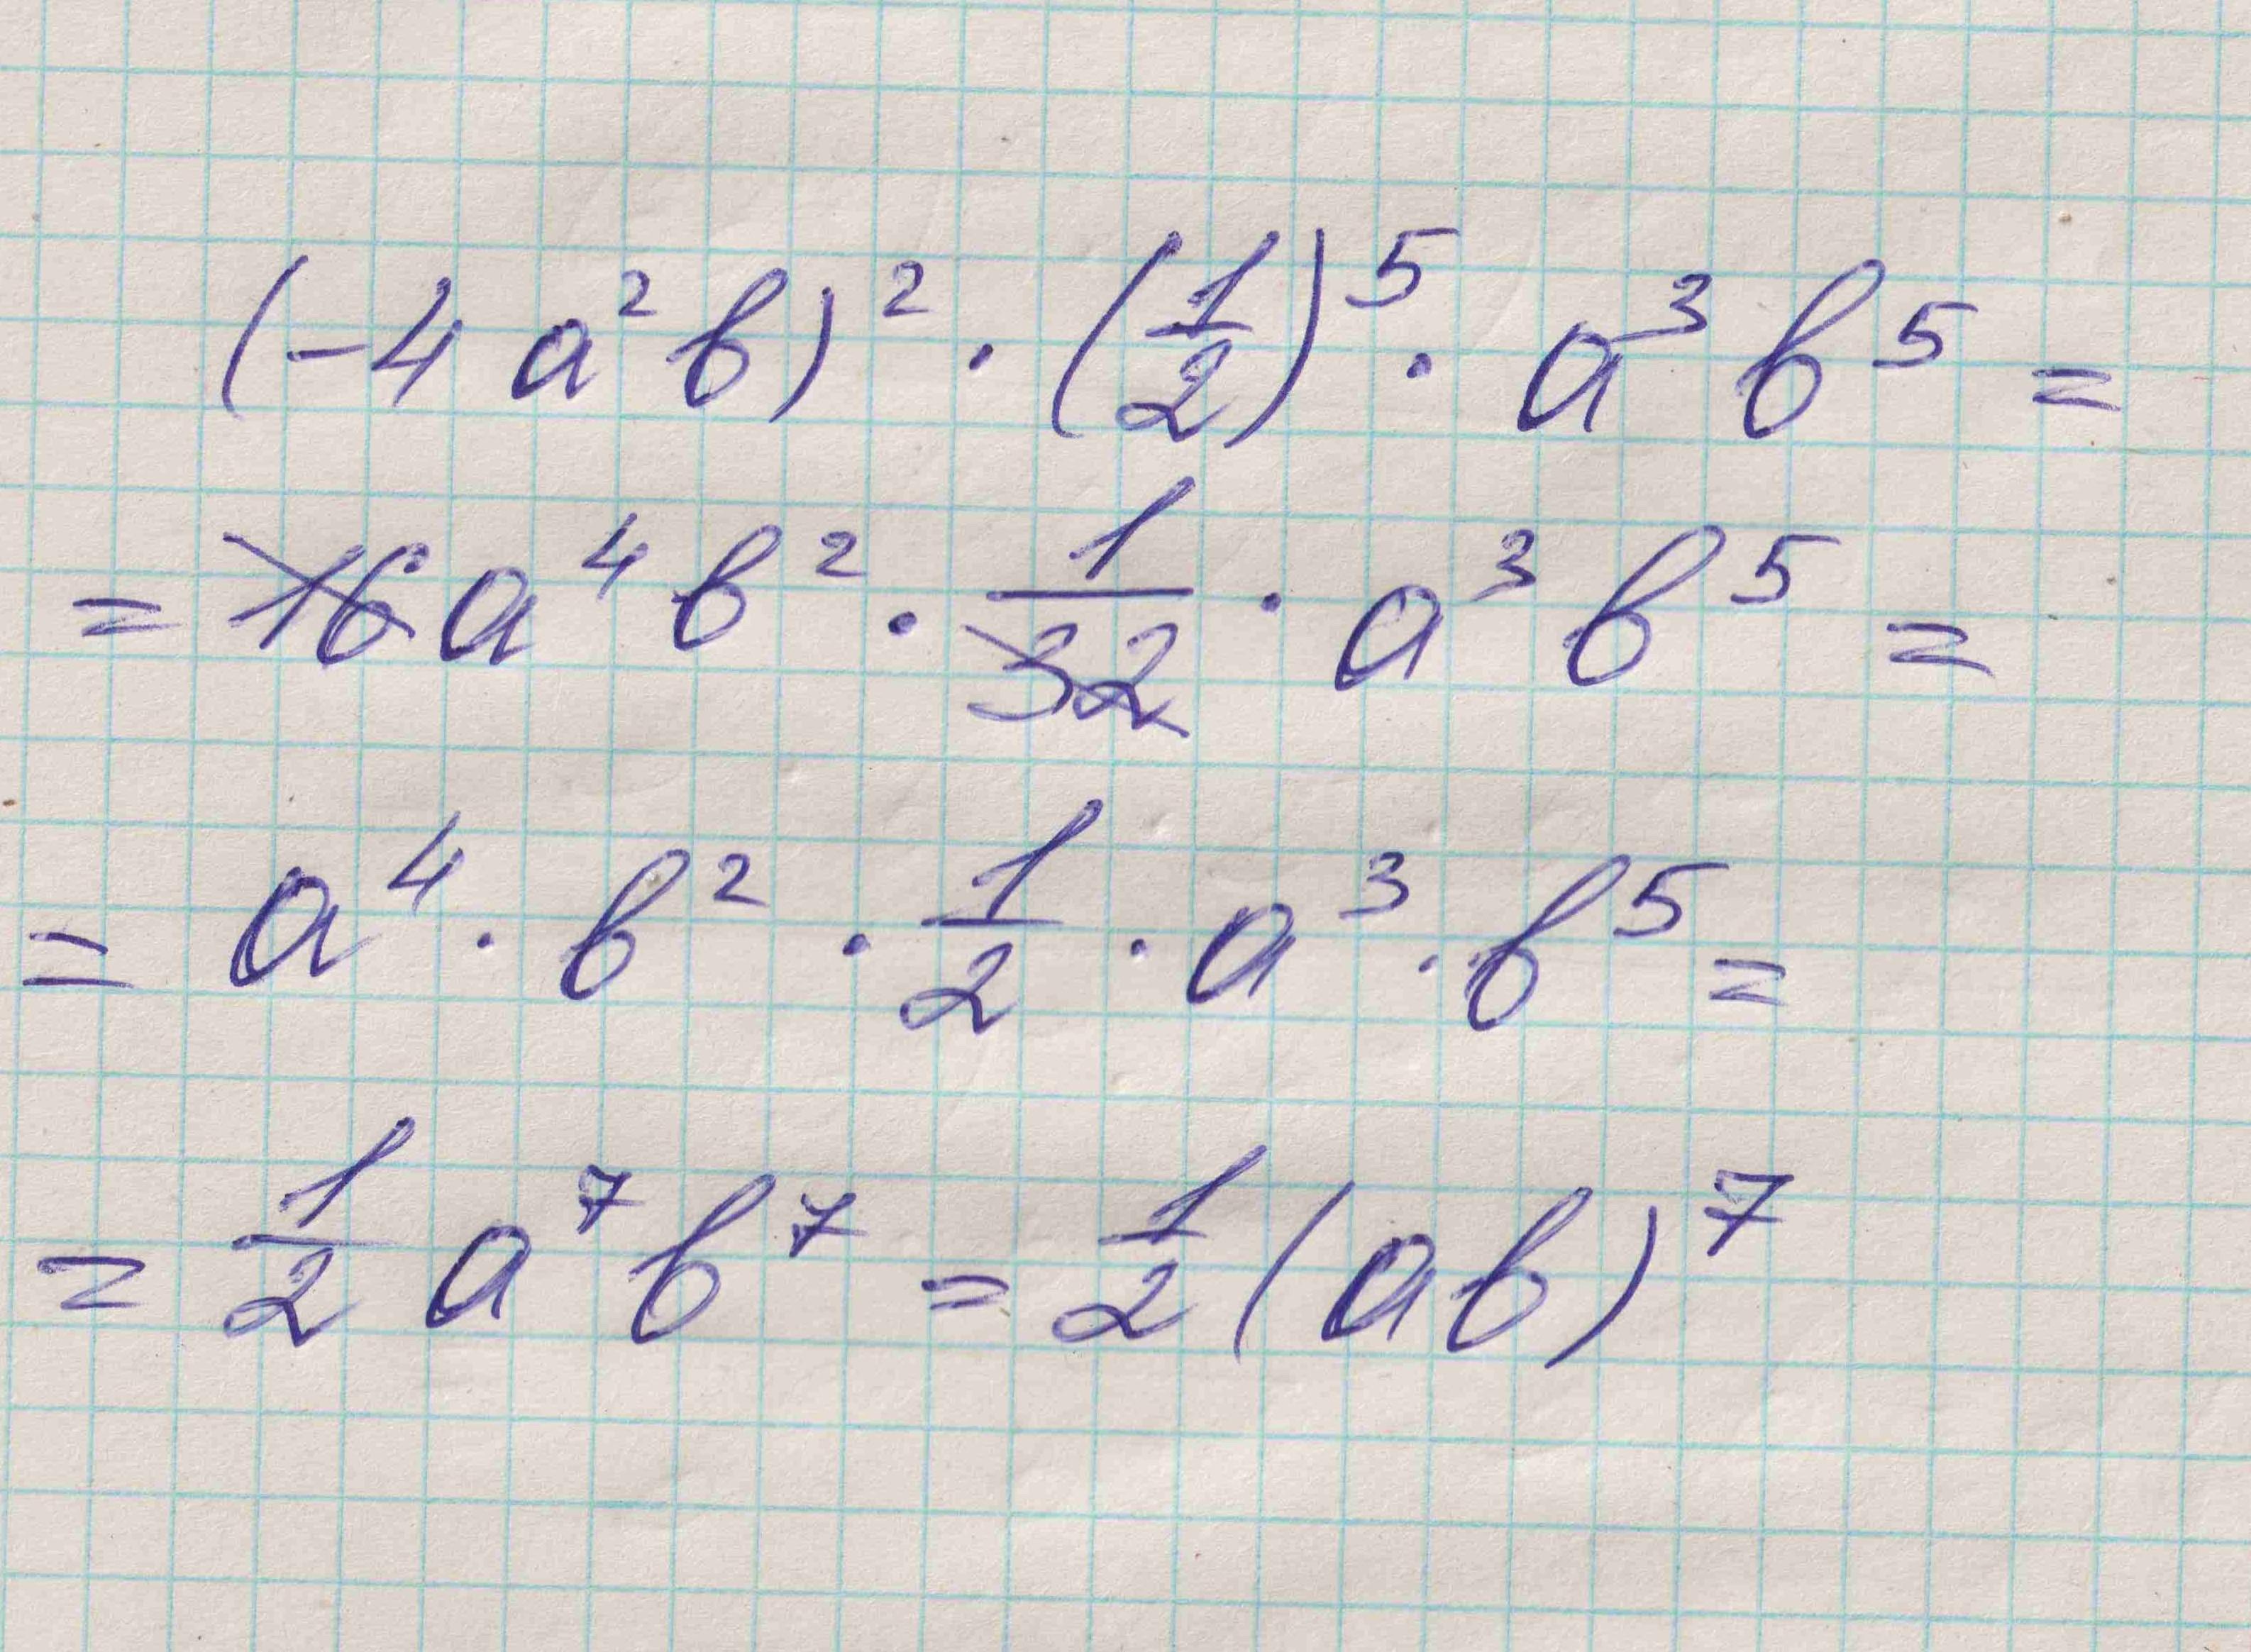 (-4a²b)² · (1/2)⁵ · a³b⁵ =
= 16a⁴b² · 1/32 · a³b⁵ =
= a⁴ · b² · 1/2 · a³ · b⁵ =
= 1/2 a⁷b⁷ = 1/2 (ab)⁷